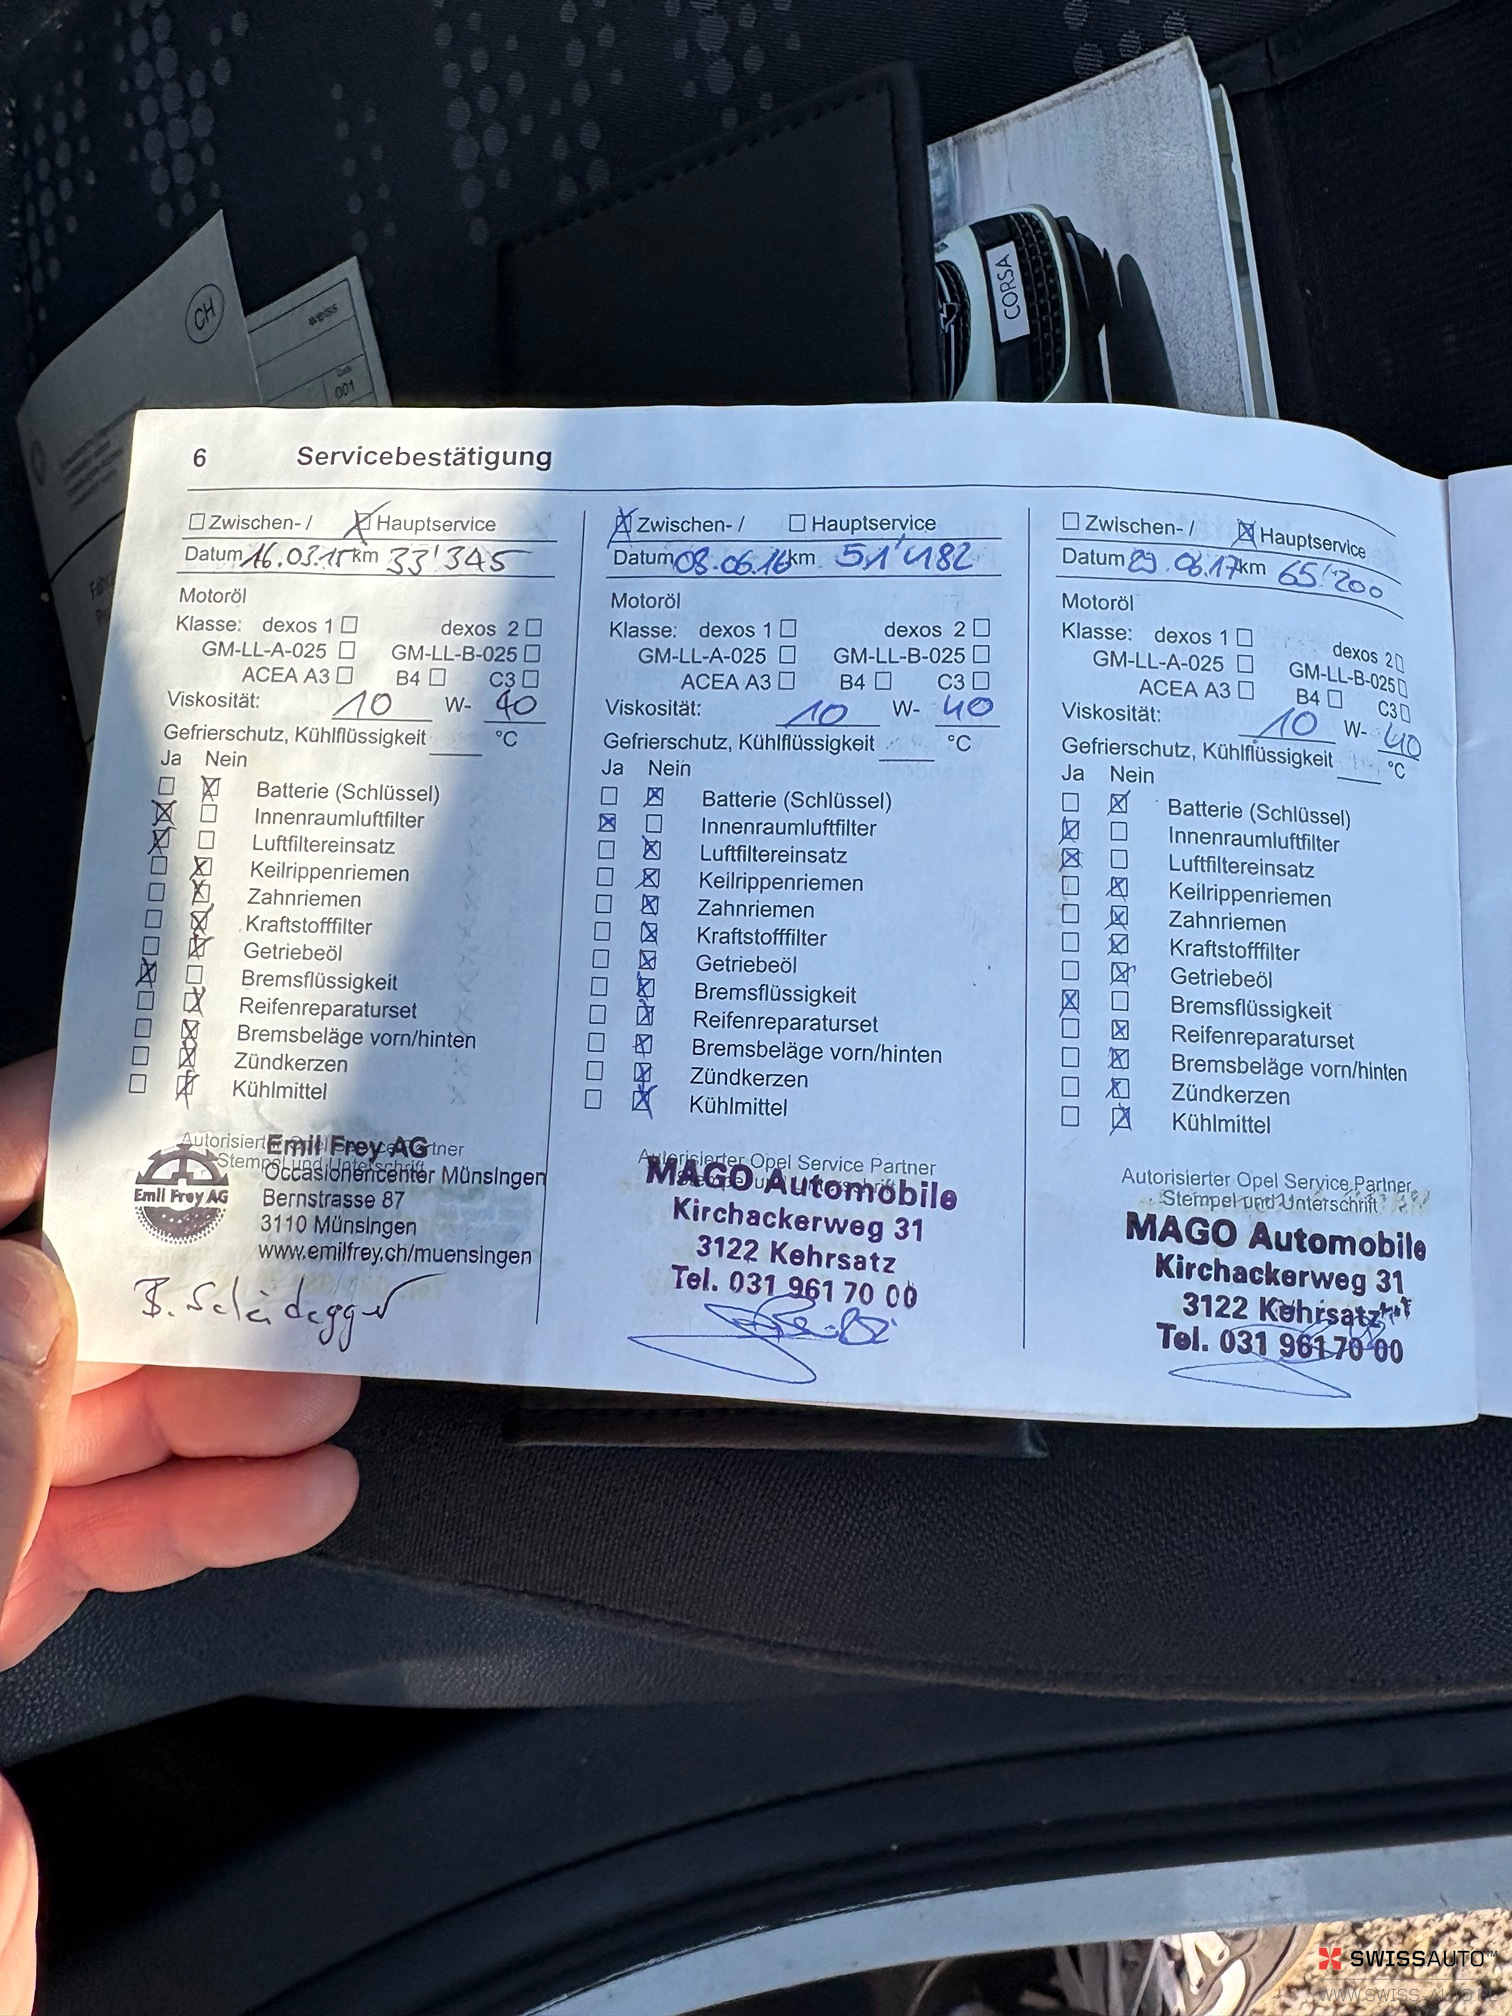 CH
swiss
001
CORSA
6 Servicebestätigung
Zwischen- / Hauptservice
Datum 16.03.15 km 33'345
Motoröl
Klasse: dexos 1 dexos 2
GM-LL-A-025 GM-LL-B-025
ACEA A3 B4 C3
Viskosität: 10 W- 40
Gefrierschutz, Kühlflüssigkeit °C
Ja Nein
Batterie (Schlüssel)
Innenraumluftfilter
Luftfiltereinsatz
Keilrippenriemen
Zahnriemen
Kraftstofffilter
Getriebeöl
Bremsflüssigkeit
Reifenreparaturset
Bremsbeläge vorn/hinten
Zündkerzen
Kühlmittel
Autorisierter Opel Service Partner
Stempel und Unterschrift
Emil Frey AG
Emil Frey AG
Occasionencenter Münsingen
Bernstrasse 87
3110 Münsingen
www.emilfrey.ch/muensingen
B. Scheidegger
Zwischen- / Hauptservice
Datum 08.06.16 km 51'482
Motoröl
Klasse: dexos 1 dexos 2
GM-LL-A-025 GM-LL-B-025
ACEA A3 B4 C3
Viskosität: 10 W- 40
Gefrierschutz, Kühlflüssigkeit °C
Ja Nein
Batterie (Schlüssel)
Innenraumluftfilter
Luftfiltereinsatz
Keilrippenriemen
Zahnriemen
Kraftstofffilter
Getriebeöl
Bremsflüssigkeit
Reifenreparaturset
Bremsbeläge vorn/hinten
Zündkerzen
Kühlmittel
Autorisierter Opel Service Partner
MAGO Automobile
Kirchackerweg 31
3122 Kehrsatz
Tel. 031 961 70 00
Zwischen- / Hauptservice
Datum 29.06.17 km 65'200
Motoröl
Klasse: dexos 1 dexos 2
GM-LL-A-025 GM-LL-B-025
ACEA A3 B4 C3
Viskosität: 10 W- 40
Gefrierschutz, Kühlflüssigkeit °C
Ja Nein
Batterie (Schlüssel)
Innenraumluftfilter
Luftfiltereinsatz
Keilrippenriemen
Zahnriemen
Kraftstofffilter
Getriebeöl
Bremsflüssigkeit
Reifenreparaturset
Bremsbeläge vorn/hinten
Zündkerzen
Kühlmittel
Autorisierter Opel Service Partner
Stempel und Unterschrift
MAGO Automobile
Kirchackerweg 31
3122 Kehrsatz
Tel. 031 961 70 00
SWISSAUTO™